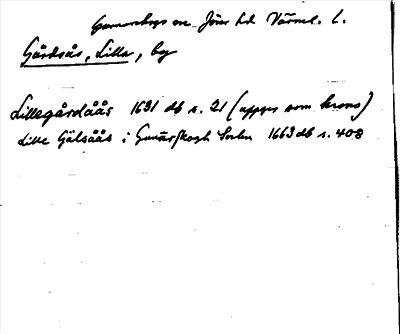 Gunnarskogs sn Jösse hd Värml. l.
Gårdsås, Lilla, by
Lillegårdåås 1631 db s. 21 (uppges som krono)
Lille Gålsåås i Gunärskogh Sochn 1663 db s. 408